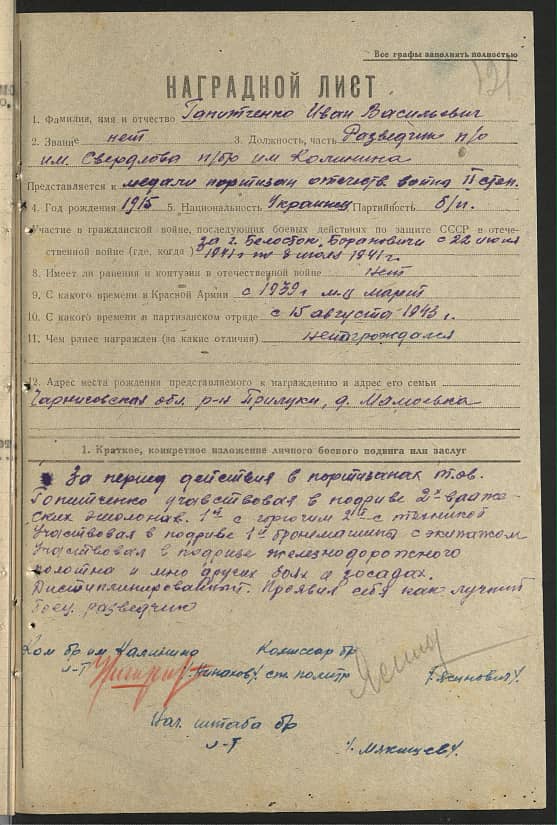 Все графы заполнять полностью
121
НАГРАДНОЙ ЛИСТ
1. Фамилия, имя и отчество Гапитченко Иван Васильевич
2. Звание нет 3. Должность, часть Разведчик п/о
им. Свердлова п/бр им Калинина
Представляется к медали портизан отечеств. войны II степ.
4. Год рождения 1915 5. Национальность Украинец Партийность б/п.
Участие в гражданской войне, последующих боевых действиях по защите СССР в отече-
ственной войне (где, когда) за г. Белосток, Борановичи с 22 июня
1941 г по 8 июля 1941 г.
8. Имеет ли ранения и контузии в отечественной войне нет
9. С какого времени в Красной Армии с 1939 г. м-ц март
10. С какого времени в партизанском отряде с 15 августа 1943 г.
11. Чем ранее награжден (за какие отличия) ненагрождался
12. Адрес места рождения представляемого к награждению и адрес его семьи
обл. р-н Прилуки, д.
1. Краткое, конкретное изложение личного боевого подвига или заслуг
За период действия в портизанах тов.
Гапитченко учавствовал в подриве 2х враже-
ских эшолонав. 1й с горючим 2й с техникой
Участвовал в подриве 1й бронемашины с экипажом
Участвовал в подриве железнодорожного
полотна и мно других боях и засадах.
Дистиплинированый. Проявил себя как лучший
боец разведчик
Ком бр им Калинина Комиссар бр
л-т ст. политр /Ясинович/.
Нач. штаба бр
л-т /Мякишев/.